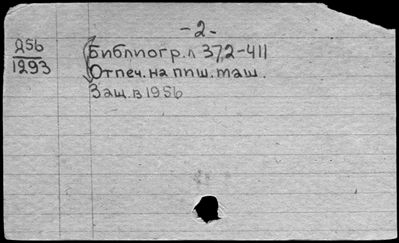 -2-
Д56
1293
Библиогр. л 372-411
Отпеч. на пиш. маш.
Защ. в 1956